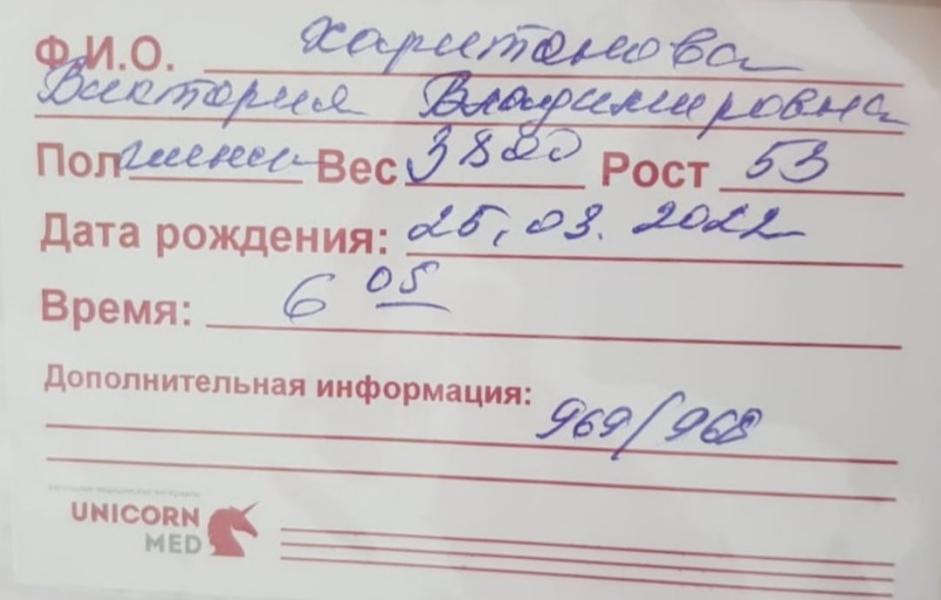 Ф.И.О. Харитонова
Виктория Владимировна
Пол жен Вес 3880 Рост 53
Дата рождения: 25, 03. 2022
Время: 6 05
Дополнительная информация:
969/968
UNICORN
MED